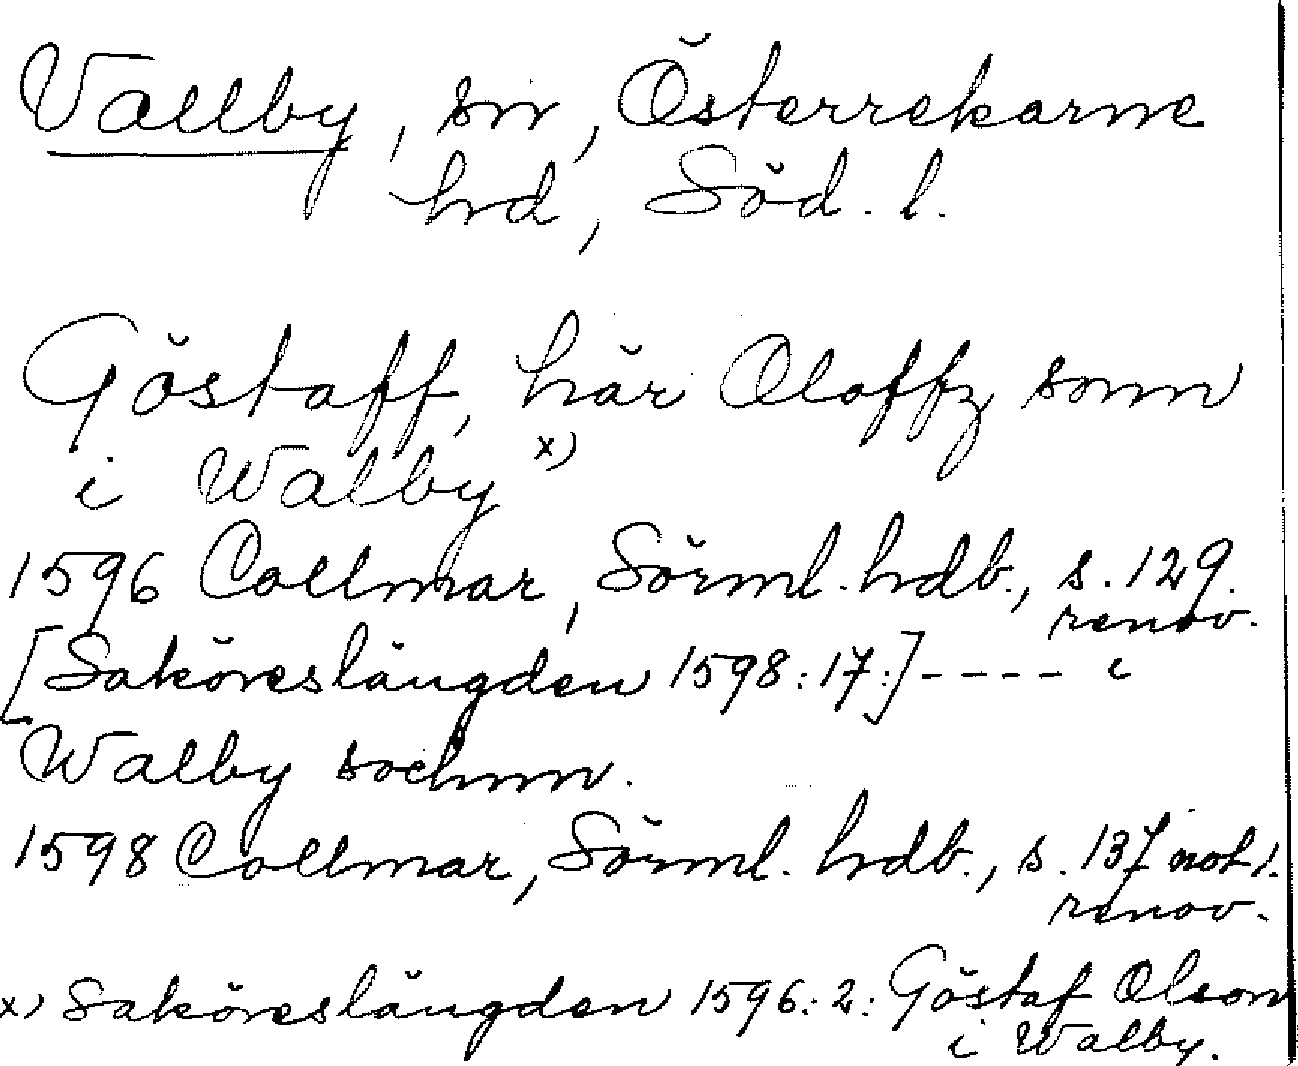 Vallby, sn, Österrekarne
hrd, Söd. l.
Göstaff, här Oloffz sonn
i Walby x)
1596 Collmar, Sörml. hdb., s. 129.
renov.
[Saköreslängden 1598:17:] - - - - i
Walby sochnn.
1598 Collmar, Sörml. hdb., s. 137 not 1.
renov.
x) Saköreslängden 1596:2: Göstaf Olson
i Walby.